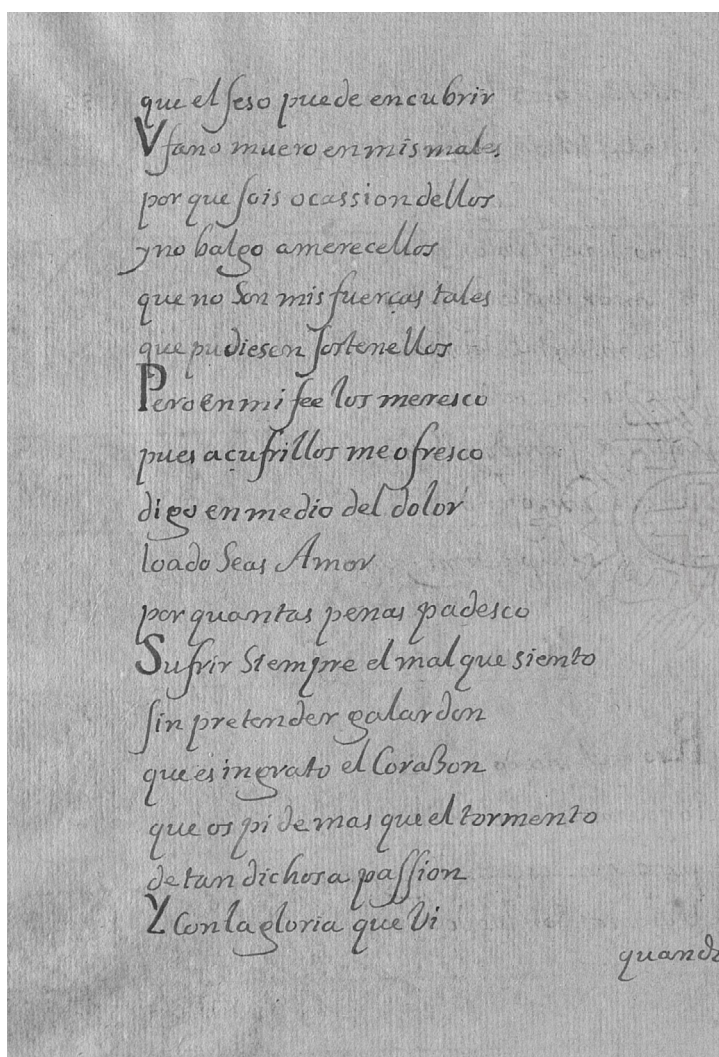 que el seso puede encubrir
Vfano muero en mis males
por que sois ocassion dellos
y no balgo a merecellos
que no son mis fuerças tales
que pudiesen sostenellos
Pero en mi fee los meresco
pues a çufrillos me ofresco
digo en medio del dolor
loado Seas Amor
por quantas penas padesco
Sufrir Siempre el mal que siento
sin pretender galardon
que es ingrato el Corazon
que os pide mas que el tormento
de tan dichosa passion
Y Con la gloria que Vi
quando